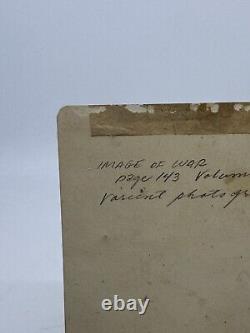 IMAGE OF WAR
page 143 Volum
Varient photogr
ebay